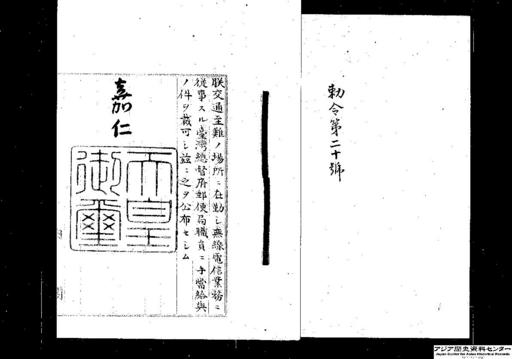 勅令第二十號
朕交通至難ノ場所ニ在勤シ無線電信業務ニ
從事スル臺灣總督府郵便局職員ニ手當給與
ノ件ヲ裁可シ茲ニ之ヲ公布セシム
嘉仁
天皇
御璽
アジア歴史資料センター
Japan Center for Asian Historical Records